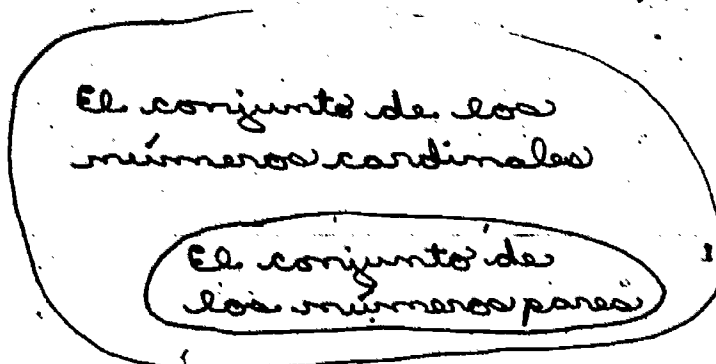 El conjunto de los
números cardinales
El conjunto de
los números pares